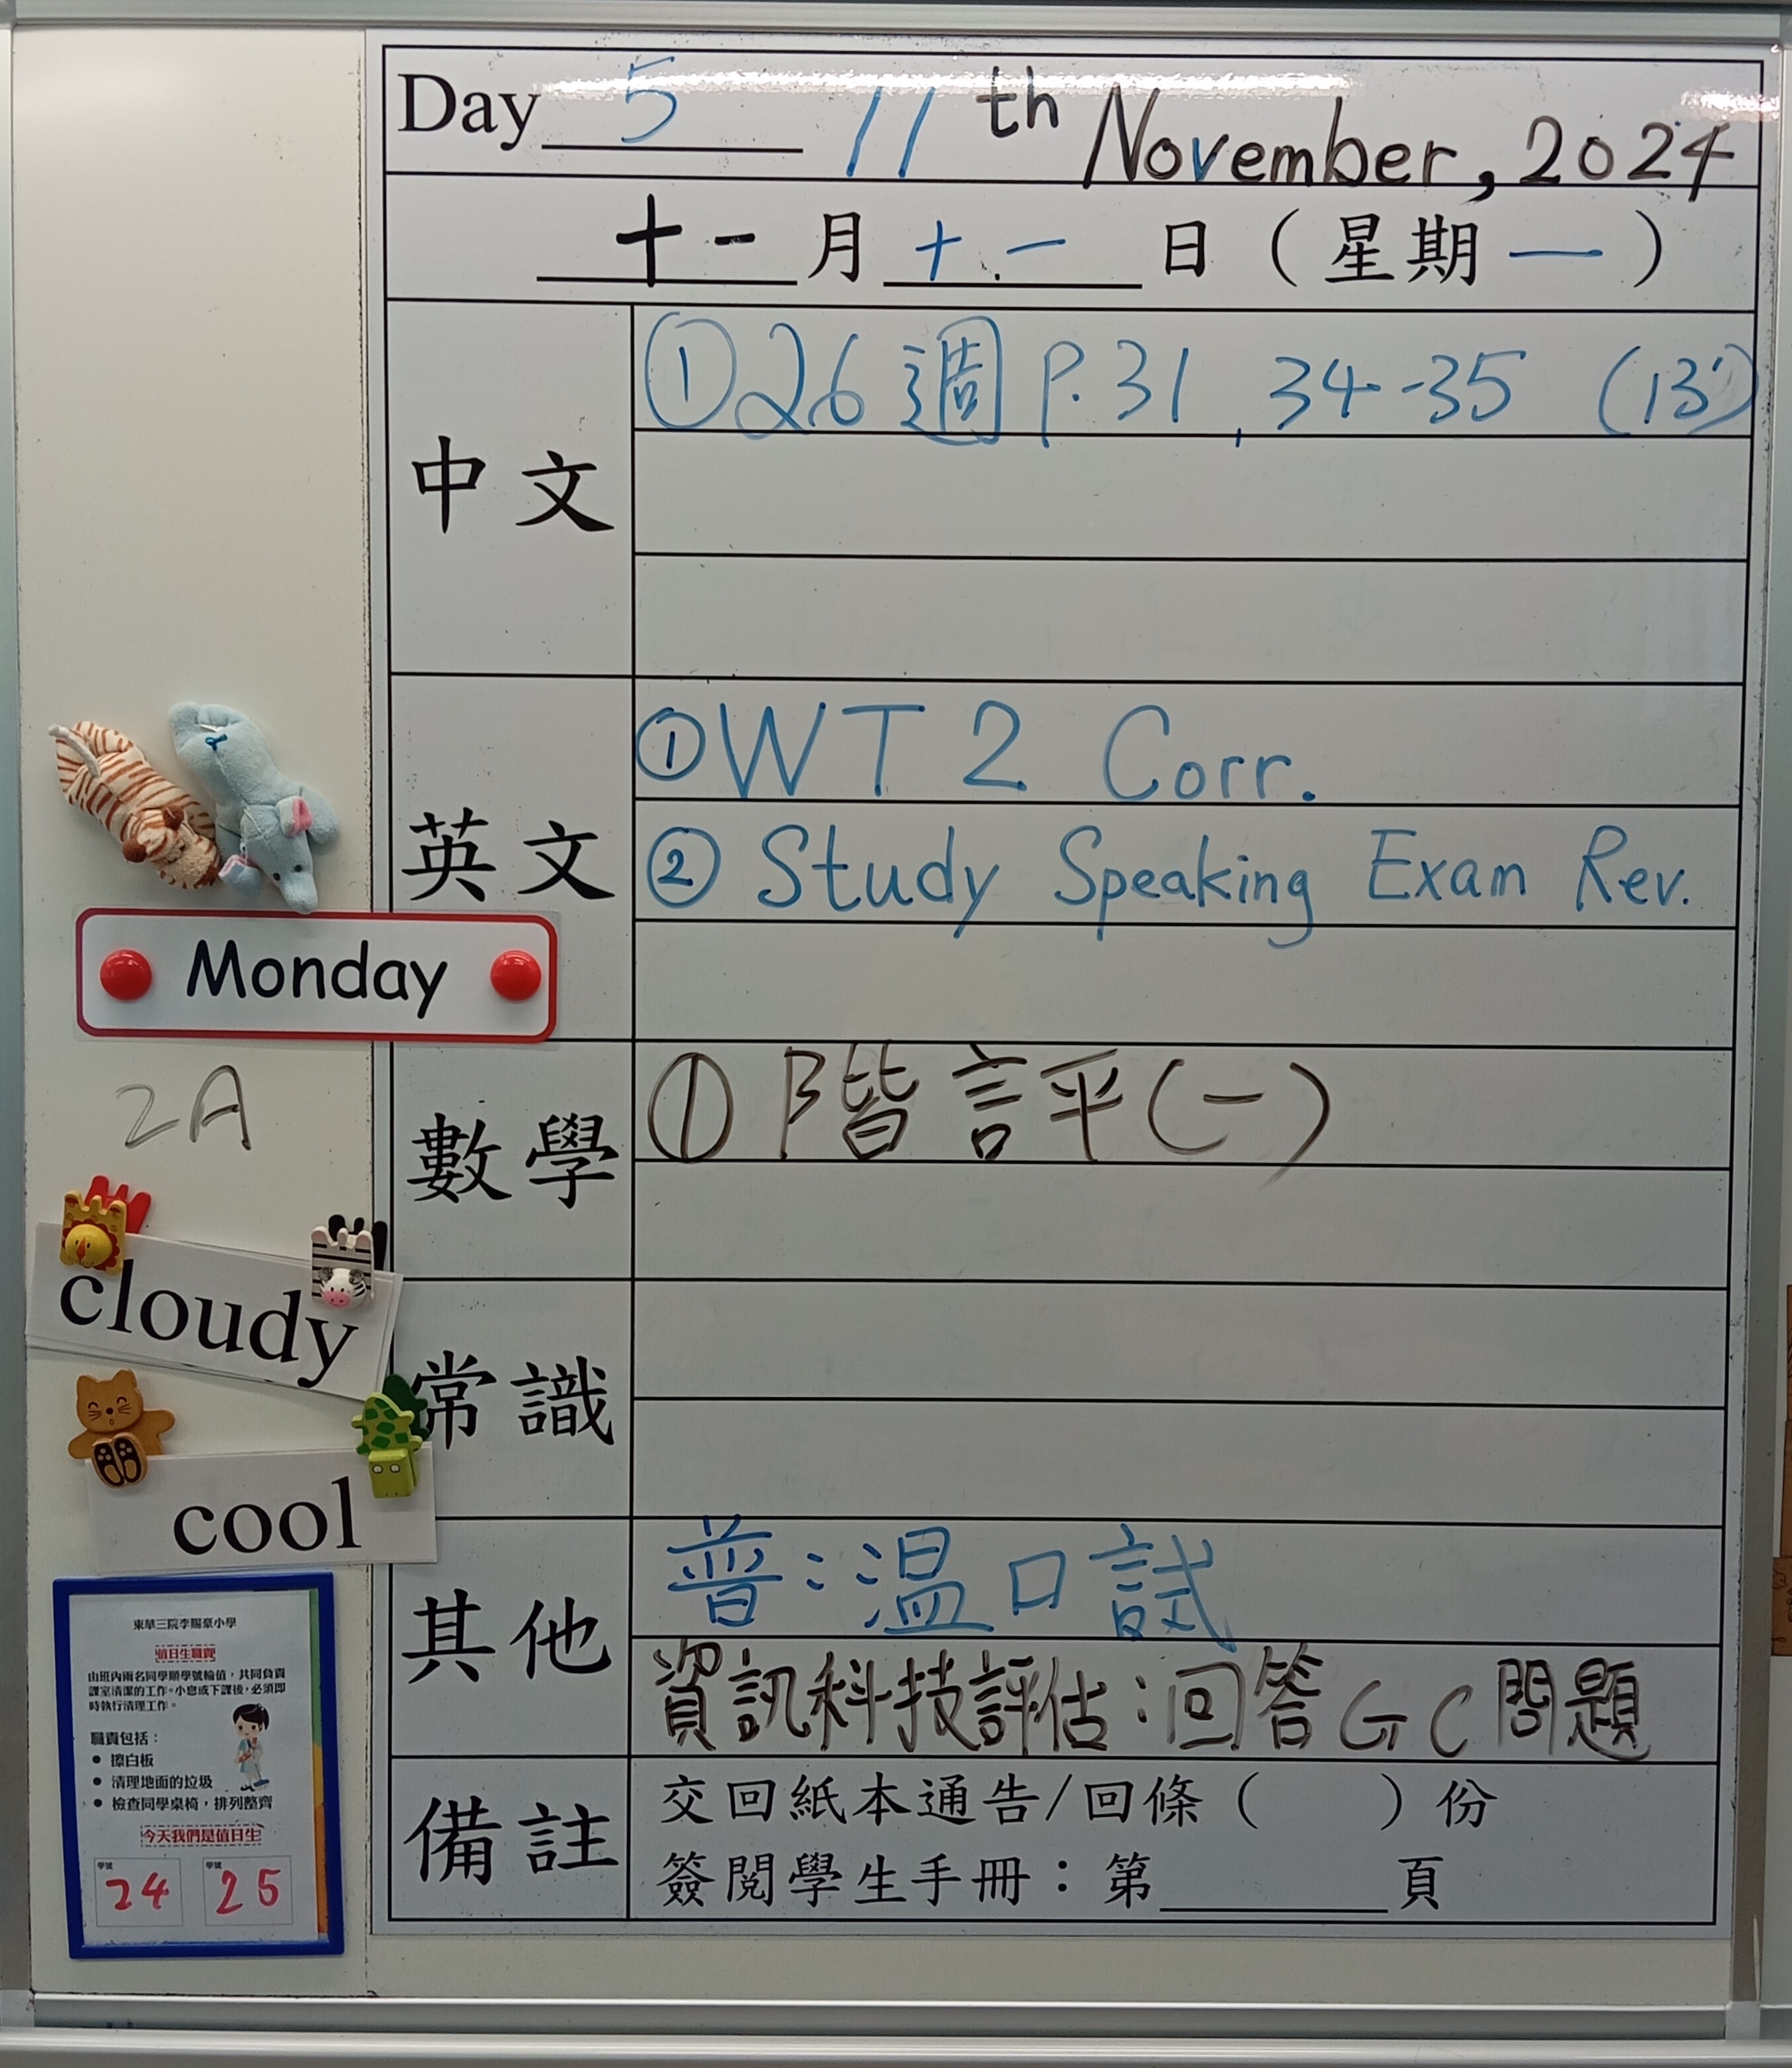 Day 5 11th November, 2024
十一月十一日（星期一）
中文
①26週 P.31, 34-35 (13/)
英文
①WT 2 Corr.
② Study Speaking Exam Rev.
Monday
2A
數學
①階評(一)
cloudy
常識
cool
其他
普：溫口試
資訊科技評估：回答GC問題
備註
交回紙本通告/回條（ ）份
簽閱學生手冊：第______頁
東華三院李賜豪小學
值日生職責
由班內兩名同學順學號輪值，共同負責
課室清潔的工作。小息或下課後，必須即
時執行清理工作。
職責包括：
● 擦白板
● 清理地面的垃圾
● 檢查同學桌椅，排列整齊
今天我們是值日生
學號 學號
24 25